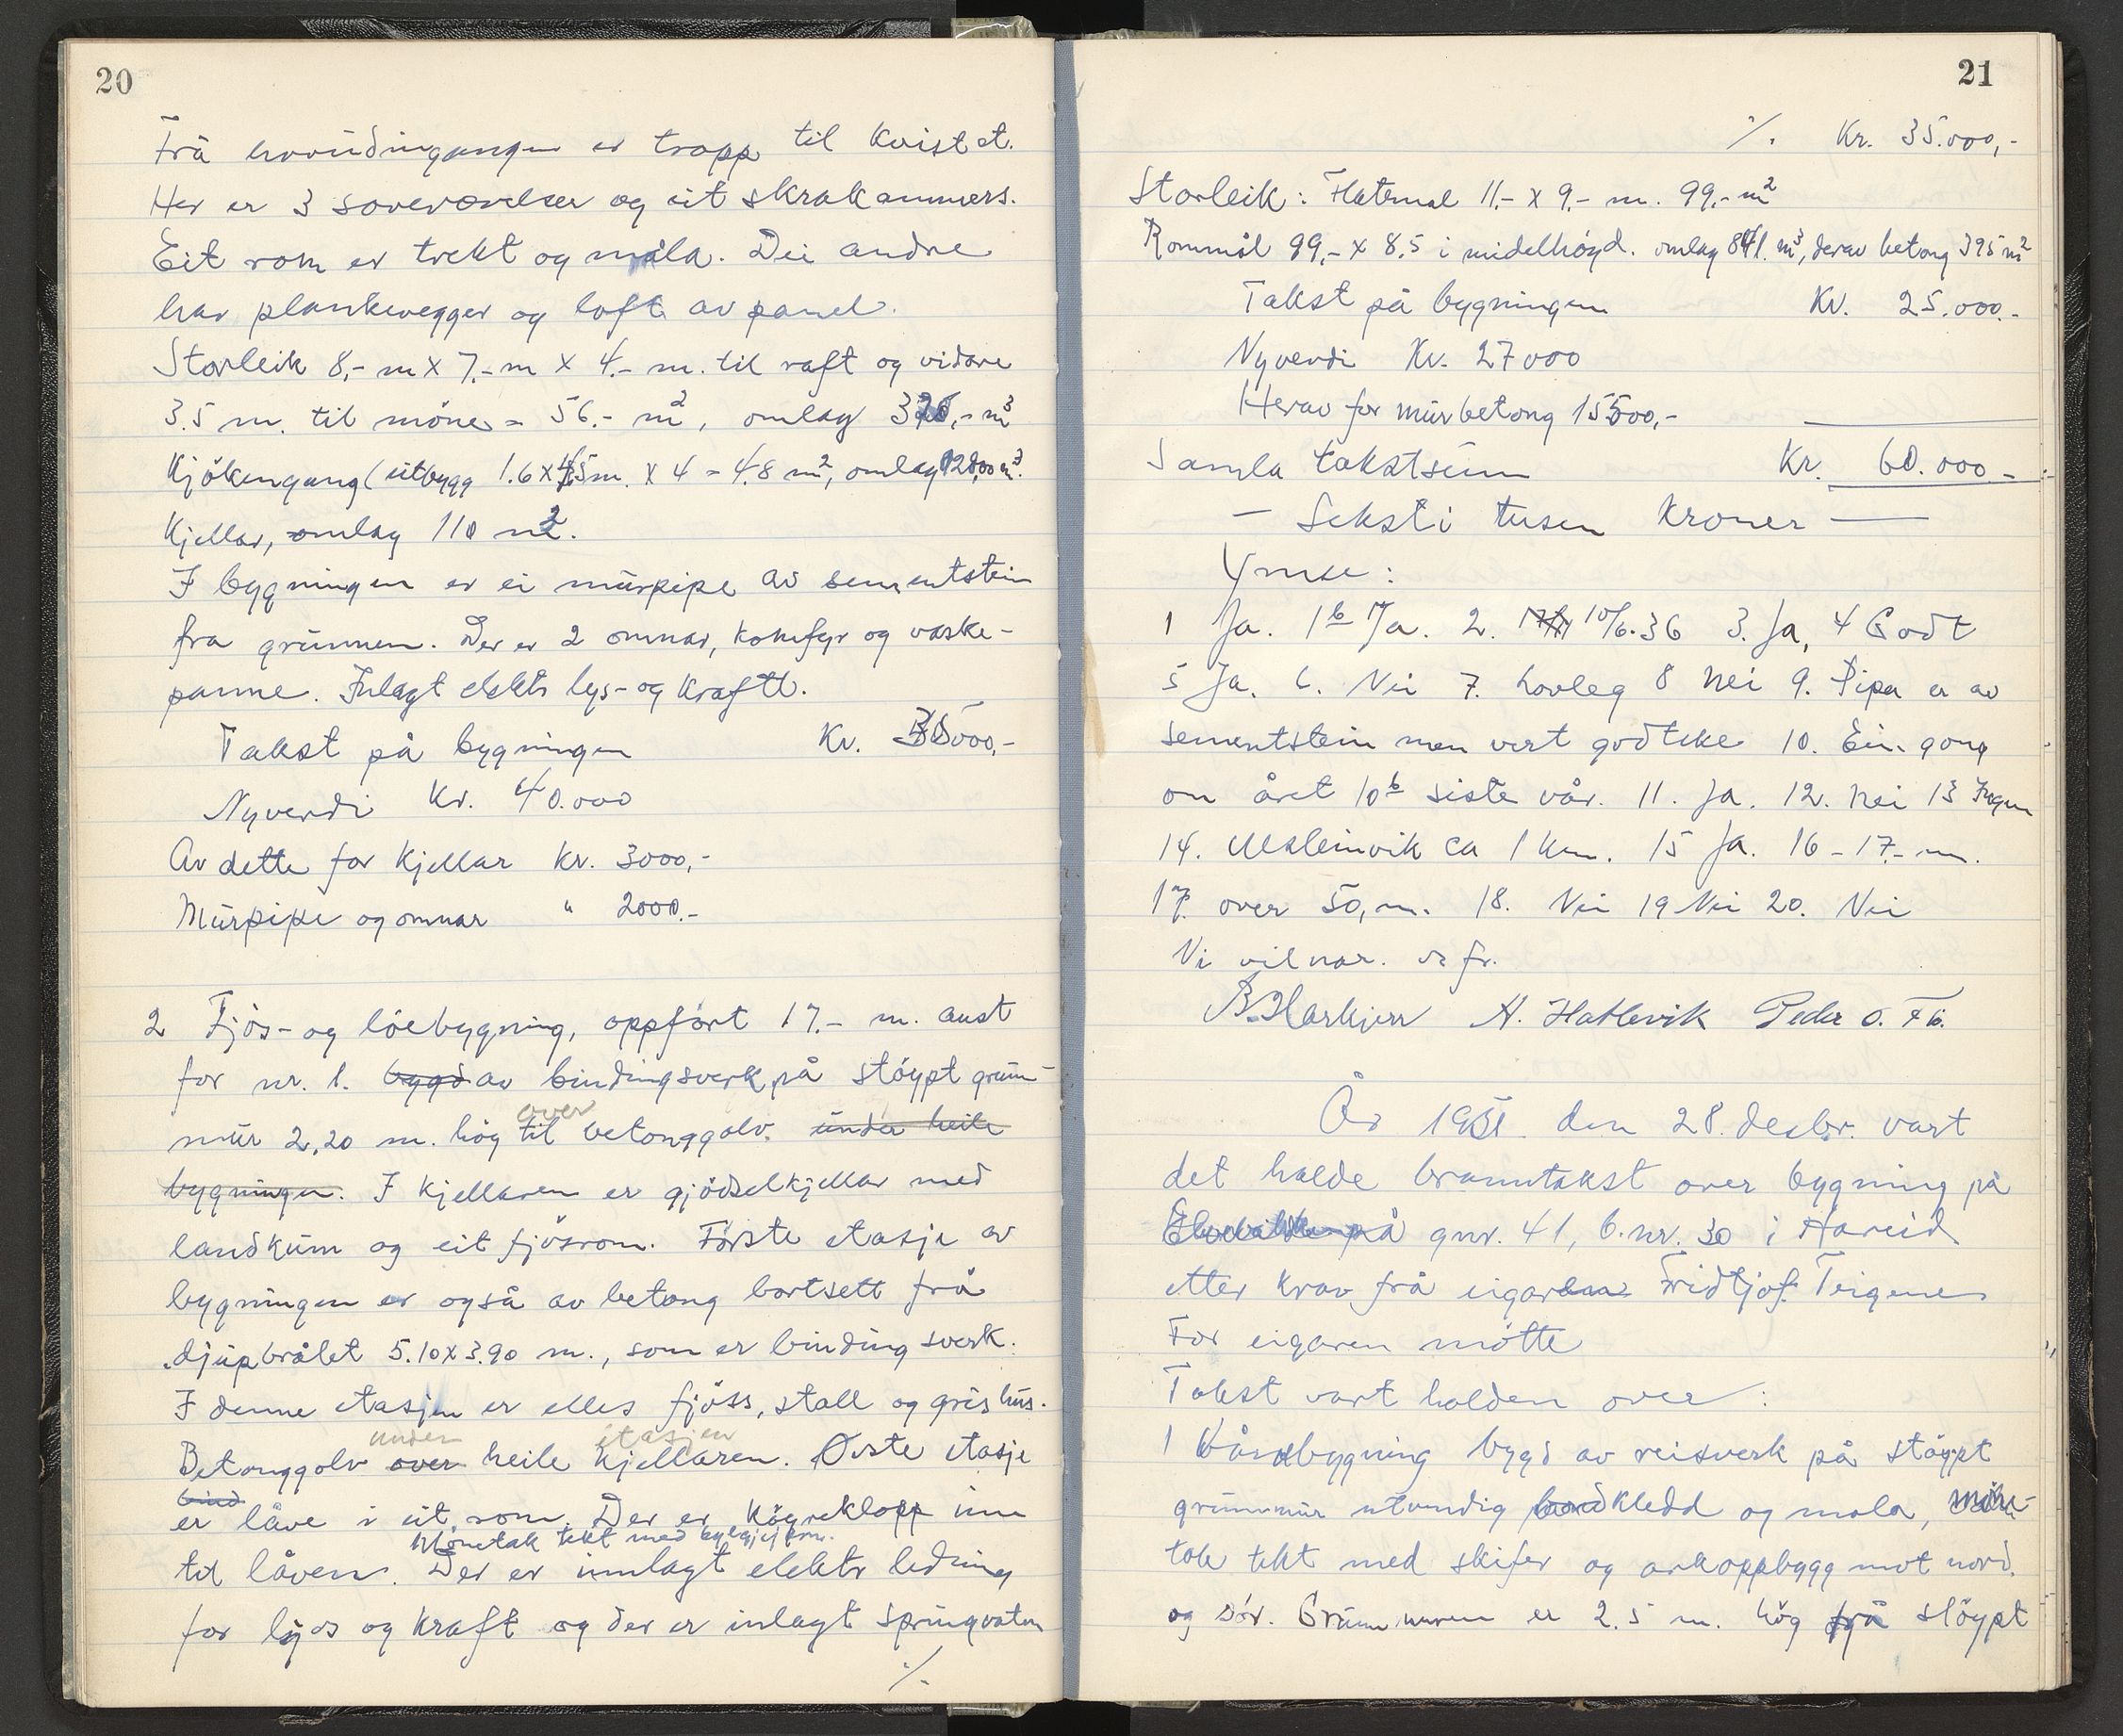 20
Frå hovudingangen er trapp til kvistet.
Her er 3 soveværelser og eit skrakammers.
Eit rom er trekt og måla. Dei andre
har plankevegger og loft av panel.
Storleik 8,- m x 7,- m x 4.- m. til raft og vidare
3.5 m. til möne = 56.- m², omlag
Kjökengang (utbygg 1.6 x m. x 4 = 4.8 m², omlag
Kjellar, omlag 110 m2.
I bygningen er ei murpipe av sementstein
fra grunnen. Der er 2 omnar, komfyr og vaske-
panne. Inlagt elektr lys- og kraftl.
Takst på bygningen Kr. 35000,-
Nyverdi Kr. 40.000
Av dette for kjellar kr. 3000,-
Murpipe og omnar " 2000.-
2 Fjös- og löebygning, oppfört 17.- m. aust
for nr. 1. bygd av bindingsverk på stöypt grun-
over
mur 2,20 m. hög til betonggolv. under heile
bygningen. I kjellaren er gjödselkjellar med
landkum og eit fjösrom. Förste etasje av
bygningen er også av betong bortsett frå
djupbrålet 5.10 x 3.90 m., som er bindingsverk.
I denne etasjen er elles fjöss, stall og grishus.
under etasjen
Betonggolv over heile kjellaren. Övste etasje
bind
er låve i eit rom. Der er köyreklopp inn
Mönetak tekt med bylgjejern.
til låven. Der er innlagt elektr ledning
for lys og kraft og der er inlagt springvatn
./.
21
./. Kr. 35.000,-
Storleik: Flatemal 11.- x 9.- m. 99,- m²
Rommål 99,- x 8,5 i midelhögd. omlag 841. m³, derav betong 395 m²
Takst på bygningen Kr. 25.000.-
Nyverdi Kr. 27000
Herav for murbetong 15500,-
Samla takstsum Kr. 60.000.-
- Seksti tusen Kroner -
Ymse:
1 Ja. 1b Ja. 2. 10/6.36 3. Ja, 4 Godt
5 Ja. 6. Nei 7. Lovleg 8 Nei 9. Pipa er av
sementstein men vert godteke 10. Ein gong
om året 10b siste vår. 11. Ja. 12. Nei 13 Ingen
14. ca 1 km. 15 Ja. 16 - 17.- m.
17. over 50,m. 18. Nei 19 Nei 20. Nei
Vi vilnar. vr fr.
A. Hatlevik Peder O.
År 1951 den 28. desbr. vart
det halde branntakst over bygning på
på gnr. 41, b.nr. 30 i Hareid
etter krav frå eigaren Fridtjof Teigene
For eigaren mötte
Takst vart halden over:
1 Våndbygning bygd av reisverk på stöypt
grunnmur utvendig bordkledd og mala, möne-
tak tekt med skifer og arkoppbygg mot nord.
og sör. Grunnmuren er 2.5 m. hög frå stöypt